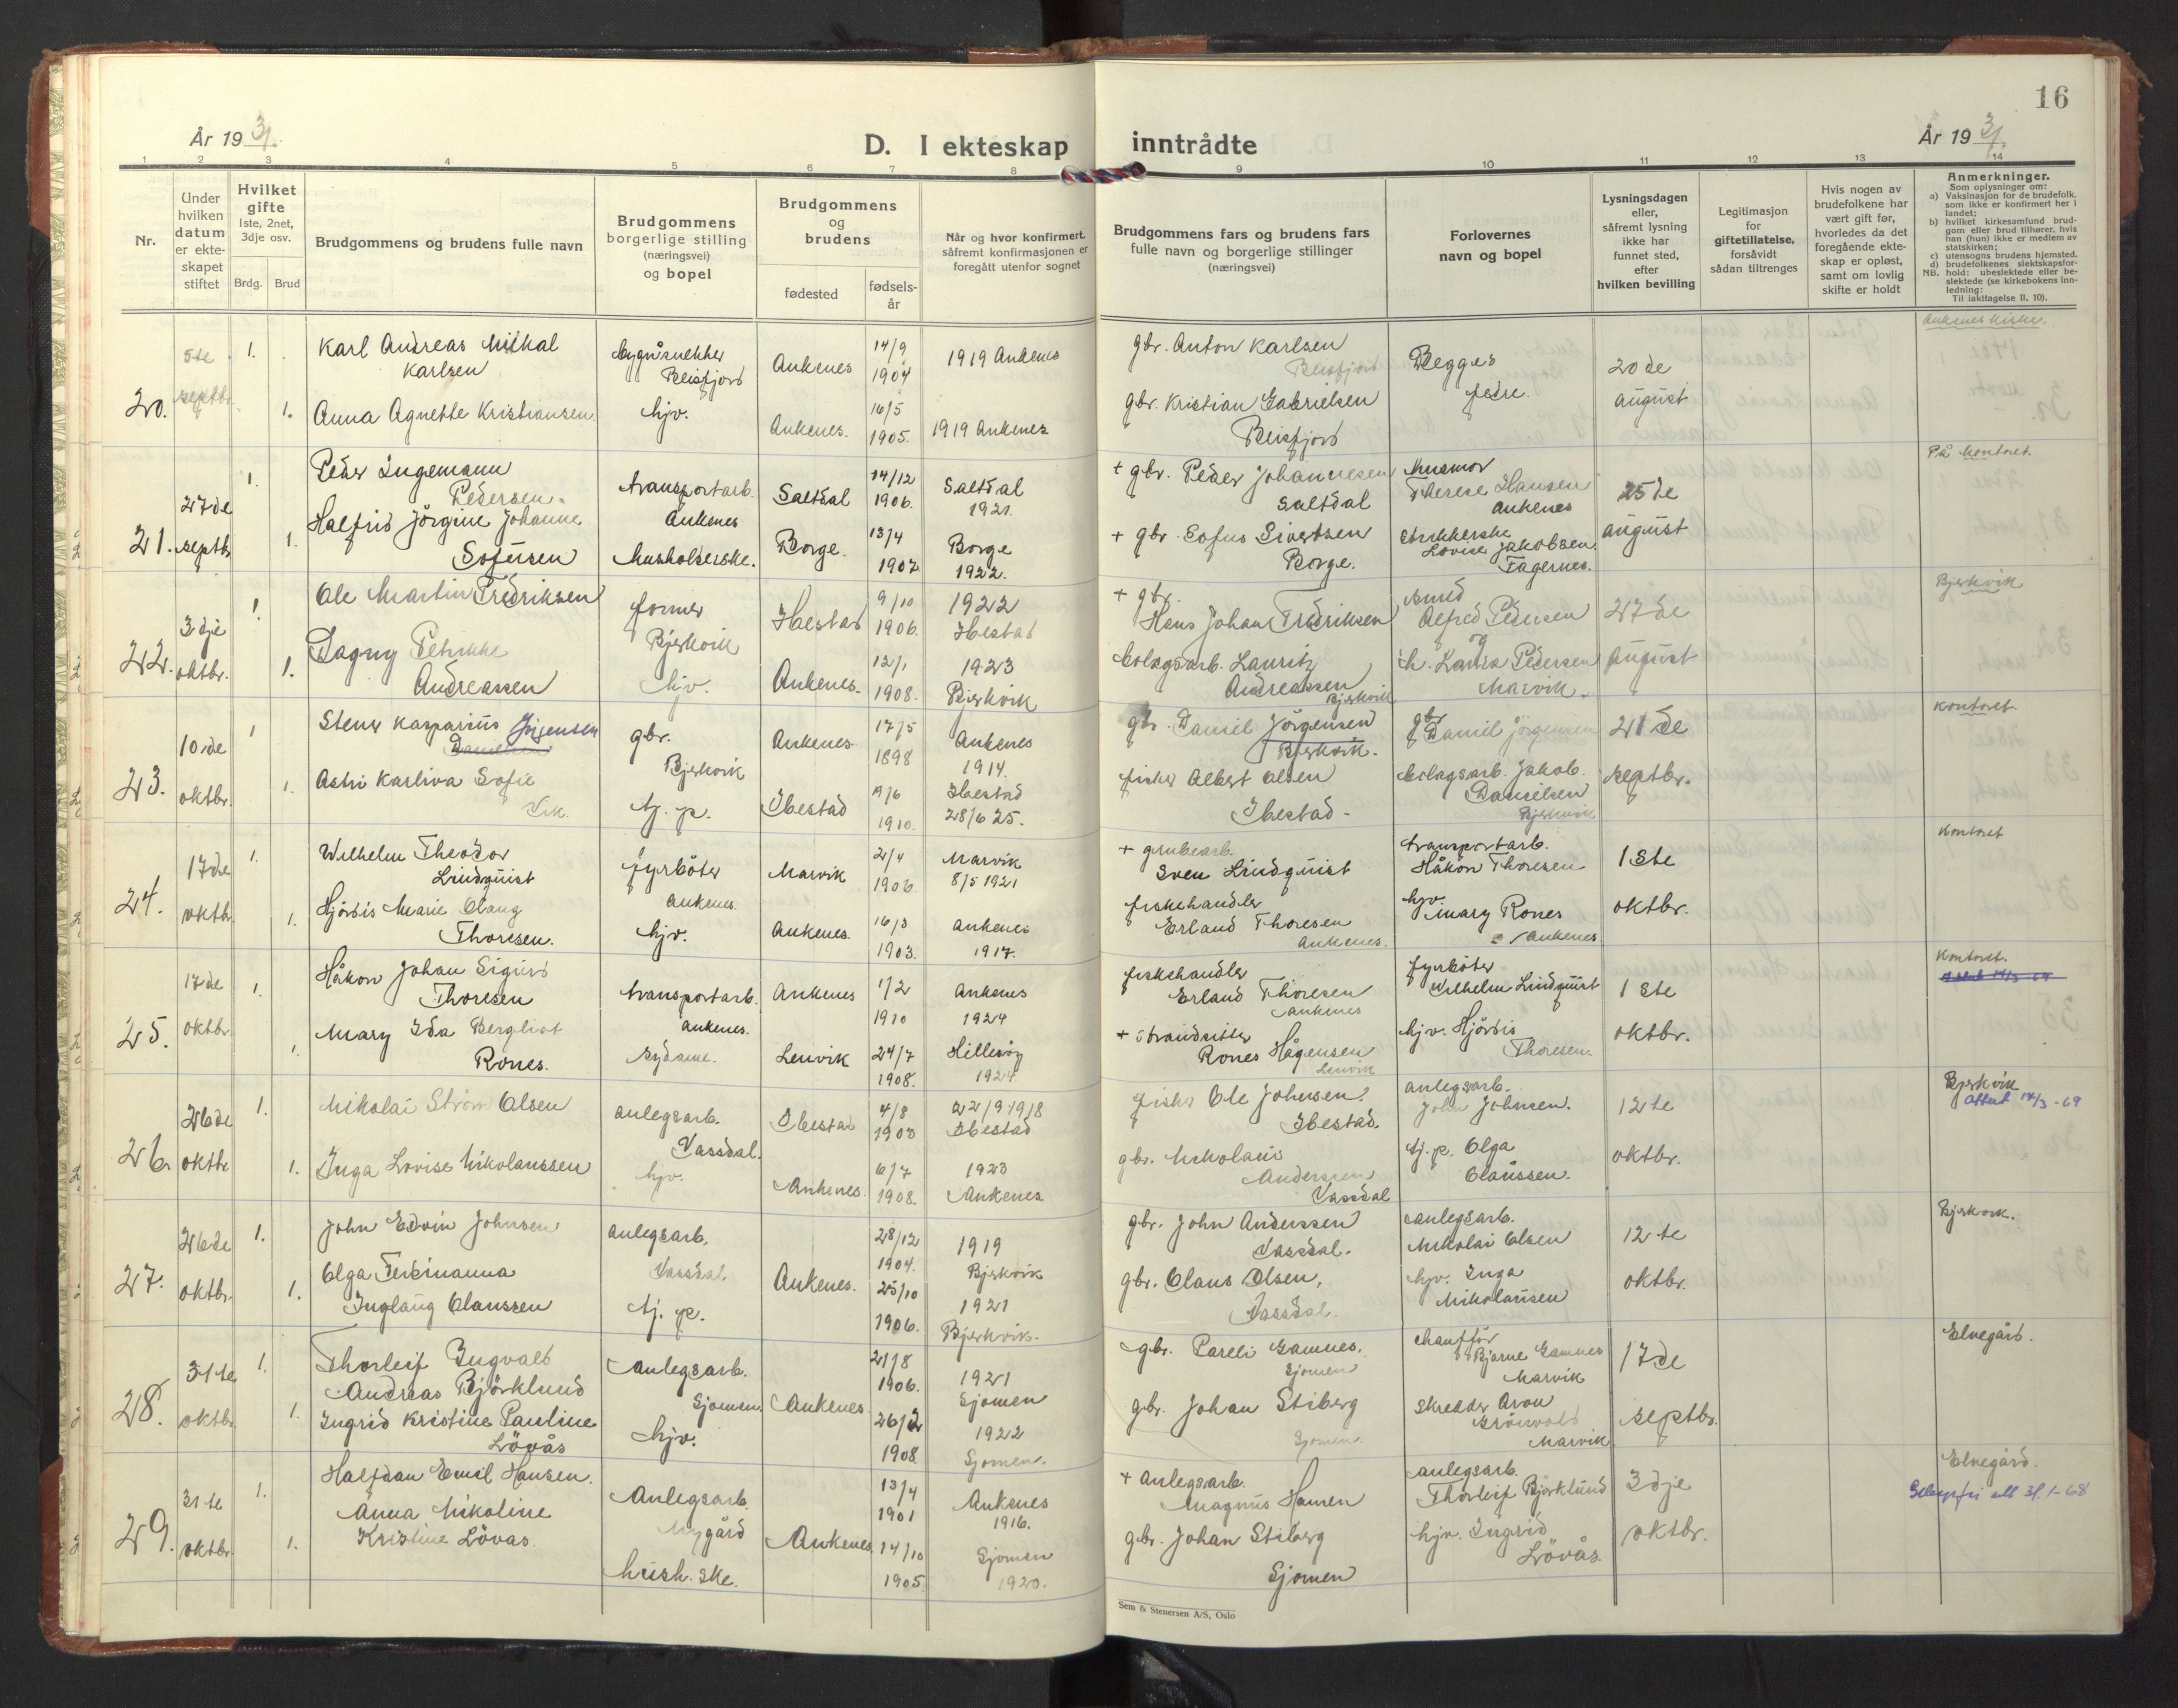 16
År 1931.
D. I ekteskap inntrådte
År 1931.
1 2 3 4 5 6 7 8 9 10 11 12 13 14
Nr.
Under hvilken datum er ekte-skapet stiftet
Hvilket gifte
1ste, 2net, 3dje osv.
Brdg. Brud
Brudgommens og brudens fulle navn
Brudgommens borgerlige stilling (næringsvei) og bopel
Brudgommens og brudens
fødested
fødsels-år
Når og hvor konfirmert, såfremt konfirmasjonen er foregått utenfor sognet
Brudgommens fars og brudens fars fulle navn og borgerlige stillinger (næringsvei)
Forlovernes navn og bopel
Lysningsdagen eller, såfremt lysning ikke har funnet sted, efter hvilken bevilling
Legitimasjon for giftetillatelse, forsåvidt sådan tiltrenges
Hvis nogen av brudefolkene har vært gift før, hvorledes da det foregående ekte-skap er opløst, samt om lovlig skifte er holdt
Anmerkninger.
Som oplysninger om:
a) Vaksinasjon for de brudefolk, som ikke er konfirmert her i landet;
b) hvilket kirkesamfund brud-gom eller brud tilhører, hvis han (hun) ikke er medlem av statskirken;
c) utensogns brudens hjemsted.
d) brudefolkenes slektskapsfor-hold: ubeslektede eller be-slektede (se kirkebokens inn-ledning:
NB.
Til iakttagelse II, 10).
20. 5te septbr. 1. 1.
Karl Andreas Mikal Karlsen
bygn.snekker Beisfjord
Ankenes 14/9 1904 1919 Ankenes
gbr. Anton Karlsen Beisfjord
Begges fedre.
20de august
Ankenes kirke.
Anna Agnethe Kristiansen
hjv.
Ankenes. 16/5 1905. 1919 Ankenes
gbr. Kristian Gabrielsen Beisfjord
21. 27de septbr. 1. 1.
Peder Ingemann Pedersen.
transportarb. Ankenes
Saltdal 14/12 1906. Saltdal 1921.
+ gbr. Peder Johannesen Saltdal
husmor Therese Hansen Ankenes
25de august
På kontoret.
Halfrid Jörgine Johanne Sofusen
husholderske.
Borge. 13/4 1907 Borge 1922.
+ gbr. Sofus Sivertsen Borge.
Lovise Jakobsen. Fagernes.
22. 3dje oktbr. 1. 1.
Ole Martin Fredriksen
former Bjerkvik
Ibestad 9/10 1906. 1922 Ibestad
+ gbr. Hans Johan Fredriksen
smed Alfred Pedersen og
27de august
Bjerkvik
Dagny Petrikke Andreassen
hjv.
Ankenes. 12/1 1908. 1923 Bjerkvik
bolagsarb. Lauritz Andreassen Bjerkvik
h. Laura Pedersen Narvik.
23. 10de oktbr. 1 1.
Stener Kasparius Jörgensen
gbr. Bjerkvik
Ankenes 17/5 1898 Ankenes 1914.
gbr. Daniel Jörgensen Bjerkvik.
gbr. Daniel Jörgensen
21de septbr.
kontoret.
Astri Karliva Sofie Vik.
tj. p.
Ibestad 19/6 1910. Ibestad 28/6 25.
fisker Albert Olsen Ibestad.
bolagsarb. Jakob. Danielsen Bjerkvik
24. 17de oktbr. 1. 1.
Wilhelm Theodor Lindquist
fyrböter Ankenes.
Narvik 2/4 1906 Narvik 8/5 1921
+ grubearb. Sven Lindquist
transportarb. Håkon Thoresen
1ste oktbr.
Kontoret
Hjördis Marie Olaug Thoresen.
hjv.
Ankenes. 16/3 1903. Ankenes 1917.
fiskehandler Erland Thoresen Ankenes.
hjv. Mary Rones Ankenes
25. 17de oktbr. 1. 1.
Håkon Johan Sigurd Thoresen
transportarb. Ankenes.
Ankenes 1/2 1910 Ankenes 1924
fiskehandler Erland Thoresen Ankenes
fyrböter Wilhelm Lindquist
1ste oktbr.
Kontoret.
Mary Ida Bergliot Rones.
sydame.
Lenvik 24/7 1908. Hillesöy 1924
+ strandsitter Rones Hågensen Lenvik
hjv. Hjördis Thoresen.
26. 26de oktbr. 1. 1.
Nikolai Ström Olsen
anlegsarb. Vassdal.
Ibestad 4/8 1903 22/9 1918 Ibestad
fisker Ole Johnsen. Ibestad.
anlegsarb. John Johnsen.
12te oktbr.
Bjerkvik
Attest 14/3-69
Inga Lovise Nikolaussen
hjv.
Ankenes. 6/7 1908. 1923 Ankenes
gbr. Nikolaus Anderssen Vassdal
tj. p. Olga Olaussen.
27. 26de oktbr. 1. 1.
John Edvin Johnsen
anlegsarb. Vassdal.
Ankenes. 28/12 1904. 1919 Bjerkvik
gbr. John Anderssen Vassdal.
anlegsarb. Nikolai Olsen
12te oktbr.
Bjerkvik.
Olga Ferdinanna Inglaug Olaussen
tj. p.
25/10 1906. 1921 Bjerkvik.
gbr. Olaus Olsen, Vassdal.
hjv. Inga Nikolaisen
28. 31te oktbr. 1. 1.
Thorleif Ingvald Andreas Björklund
Anlegsarb. Sjomen.
Ankenes 21/8 1906. 1921 Sjomen
gbr. Pareli Gamnes. Sjomen
chaufför Bjarne Gamnes Narvik
17de septbr.
Elvegård.
Ingrid Kristine Pauline Lövås
hjv.
26/2 1908 1922 Sjomen.
gbr. Johan Stiberg Sjomen.
skredder Aron Grönvold Narvik
29. 31te oktbr. 1. 1.
Halfdan Emil Hansen.
Anlegsarb. Nygård
Ankenes 13/4 1901 Ankenes 1916.
+ Anlegsarb. Magnus Hansen
anlegsarb. Thorleif Björklund
3dje oktbr.
Elvegård.
Anna Nikoline Kristine Lövås.
hush.ske.
14/10 1905. Sjomen 1920.
gbr. Johan Stiberg Sjomen
hjv. Ingrid Lövås.
Sem & Stenersen A/S, Oslo